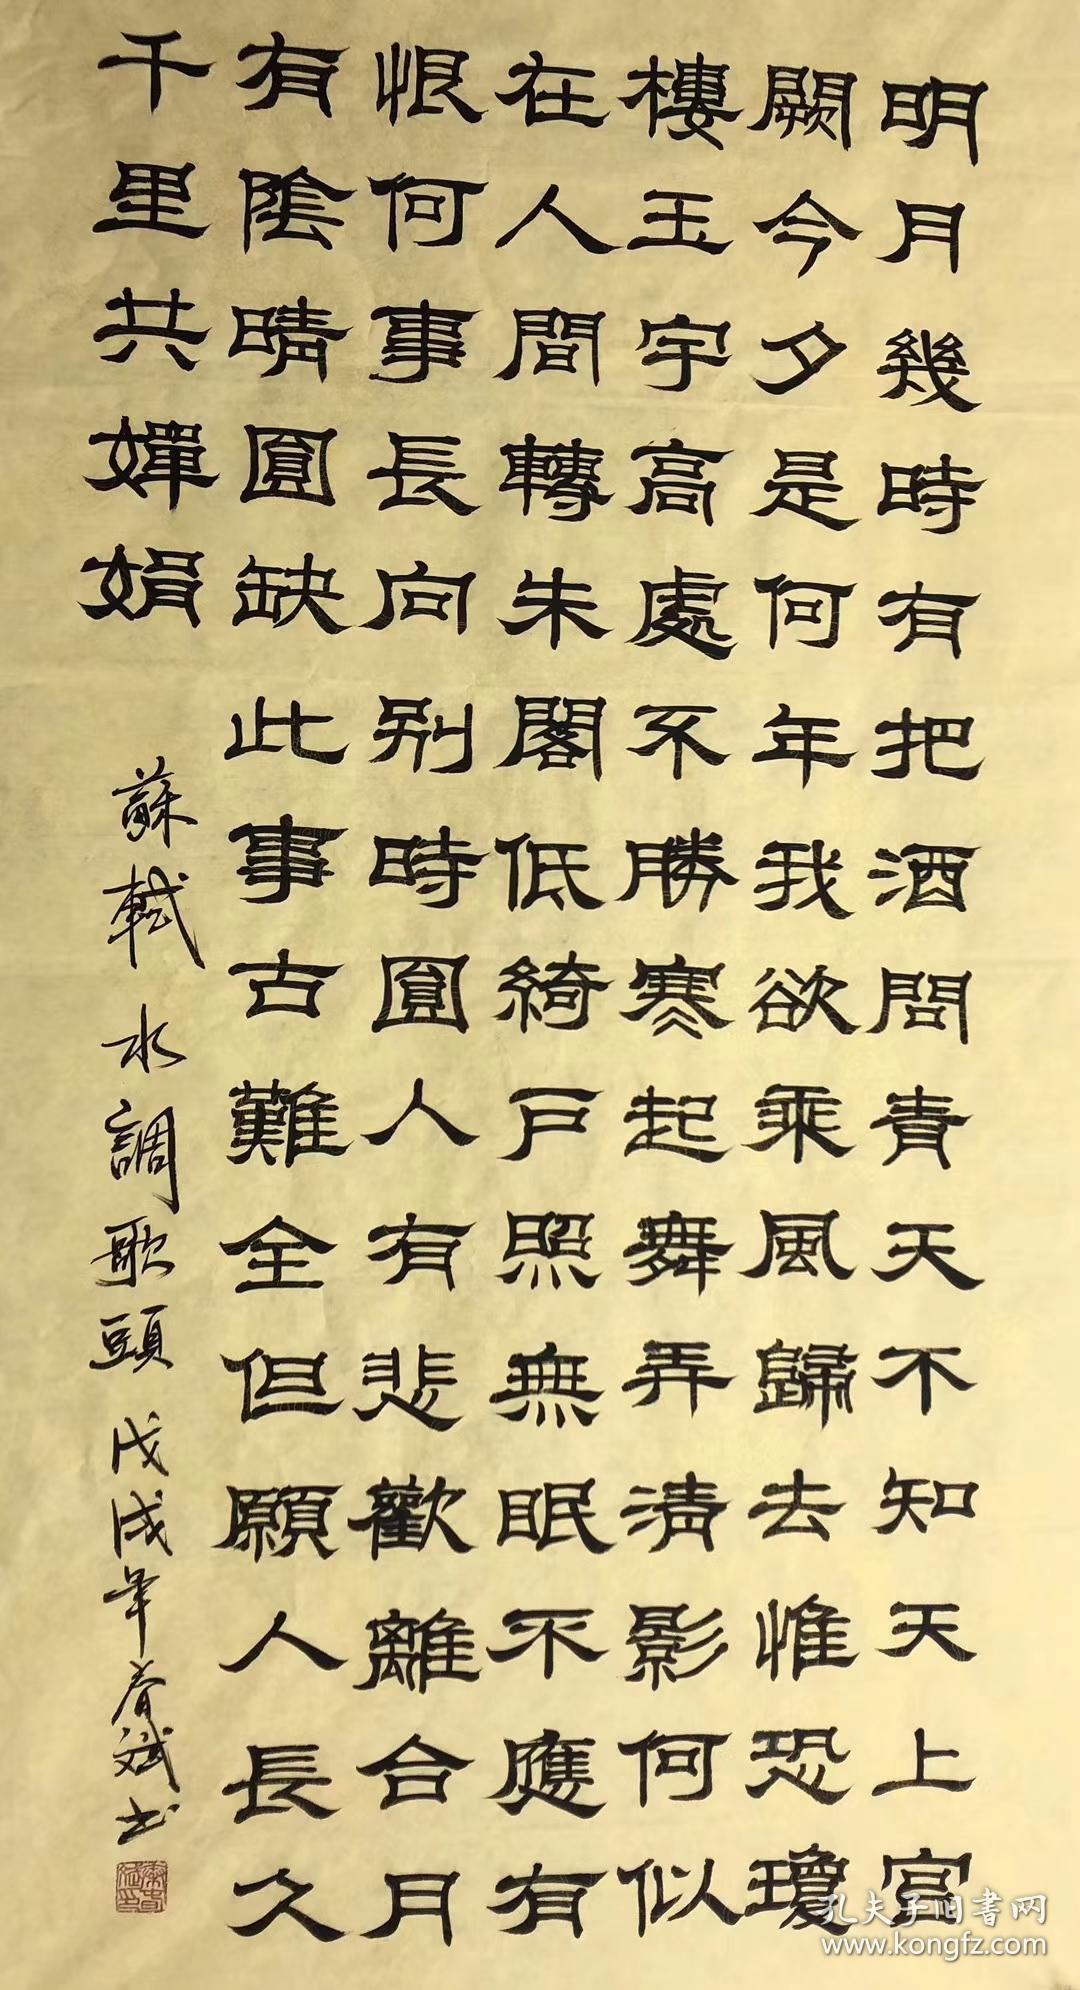 明月幾時有把酒問青天不知天上宫
闕今夕是何年我欲乘風歸去惟恐瓊
樓玉宇高處不勝寒起舞弄清影何似
在人間轉朱閣低綺户照無眠不應有
恨何事長向别時圓人有悲歡離合月
有陰晴圓缺此事古難全但願人長久
千里共嬋娟
蘇軾 水調歌頭 戊戌年春斌书
孔夫子旧书网
www.kongfz.com